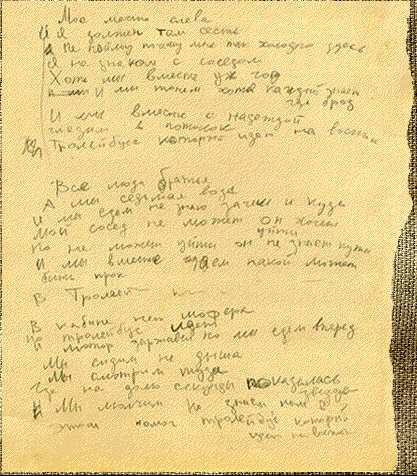 Мое место слева
И я должен там сесть
Не пойму почему мне так холодно здесь
Я не знаком с соседом
Хоть мы вместе уж год
И мы тонем хотя каждый знает
где брод
И мы вместе с надеждой
глядим в потолок
Тролейбуса который идет на восток
Все люди братья
А мы седьмая вода
И мы едем не знаю зачем и куда
Мой сосед не может он хочет
уйти
Но не может уйти он не знает пути
И мы вместе гадаем какой может
быть прок
В Тролей
В кабине нет шофера
Но тролейбус идет
И мотор заржавел но мы едем вперед
Мы сидим не дыша
Мы смотрим туда
Где на долю секунды показалась
звезда
И Мы молчим но знаем нам в
этом помог тролейбус который
идет на восток